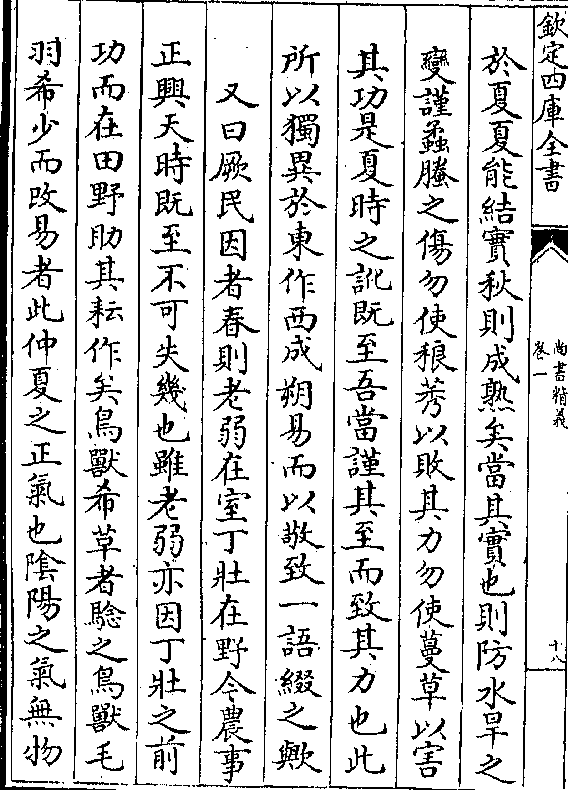 欽定四庫全書
尚書精義
卷一
十八
於夏夏能結實秋則成熟矣當其實也則防水旱之
變謹蟊螣之傷勿使稂莠以敗其力勿使蔓草以害
其功是夏時之訛既至吾當謹其至而致其力也此
所以獨異於東作西成朔易而以敬致一語綴之歟
又曰厥民因者春則老弱在室丁壯在野今農事
正興天時既至不可失幾也雖老弱亦因丁壯之前
功而在田野助其耘作矣鳥獸希革者驗之鳥獸毛
羽希少而改易者此仲夏之正氣也陰陽之氣無物